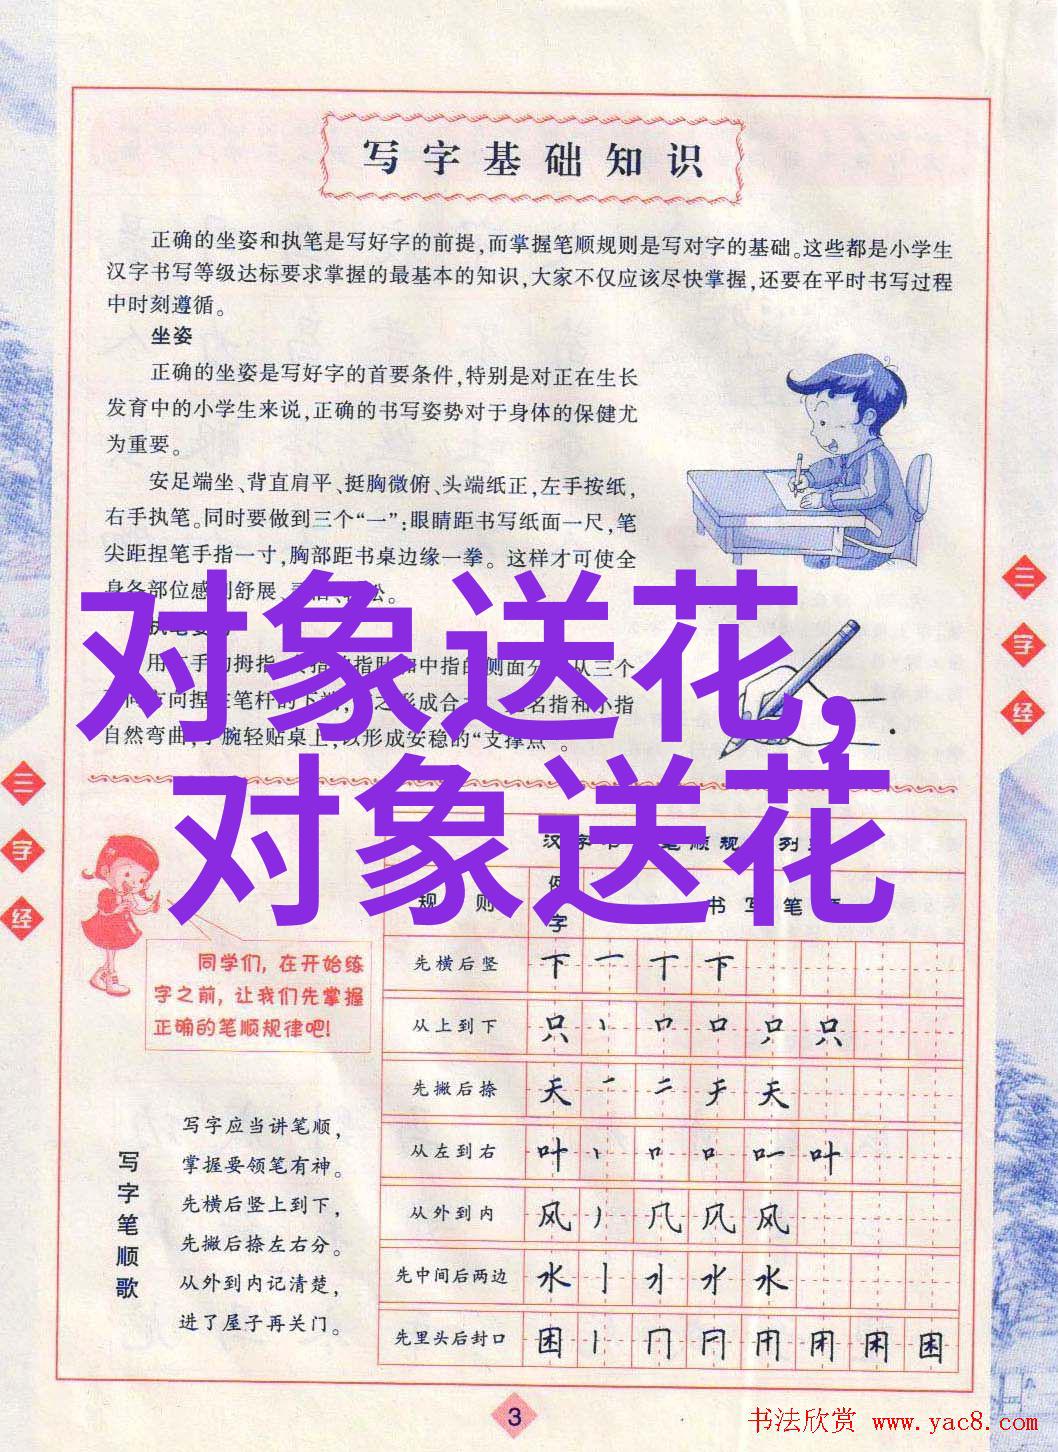 写字基础知识
正确的坐姿和执笔是写好字的前提,而掌握笔顺规则是写对字的基础。这些都是小学生
汉字书写等级达标要求掌握的最基本的知识,大家不仅应该尽快掌握,还要在平时书写过程
中时刻遵循。
坐姿
正确的坐姿是写好字的首要条件,特别是对正在生长
发育中的小学生来说,正确的书写姿势对于身体的保健尤
为重要。
安足端坐、背直肩平、挺胸微俯、头端纸正,左手按纸,
右手执笔。同时要做到三个“一”:眼睛距书写纸面一尺,笔
尖距捏笔手指一寸,胸部距书桌边缘一拳。这样才可使全
身各部位感到舒展、松。
对象送花,
对象送花
用手拇指中指的侧面分从三个
向捏笔杆的下形成合名指和小指
自然弯曲,腕轻贴桌上,以形成安稳的“支撑点”。
三字经
三字经
同学们,在开始练
字之前,让我们先掌握
正确的笔顺规律吧!
汉字书笔顺规列
规则 例字 书写笔顺
先横后竖 下 一 丅 下
从上到下 只 丶 口 口 只 只
先撇后捺 天 一 二 チ 天
从左到右 叶 丶 口 口 叶
从外到内 风 丿 几 风 风
先中间后两边 水 亅 水
先里头后封口 困 丨 冂 困
写字笔顺歌
写字应当讲笔顺,
掌握要领笔有神。
先横后竖上到下,
先撇后捺左右分。
从外到内记清楚,
进了屋子再关门。
3
书法欣赏 www.yac8.com